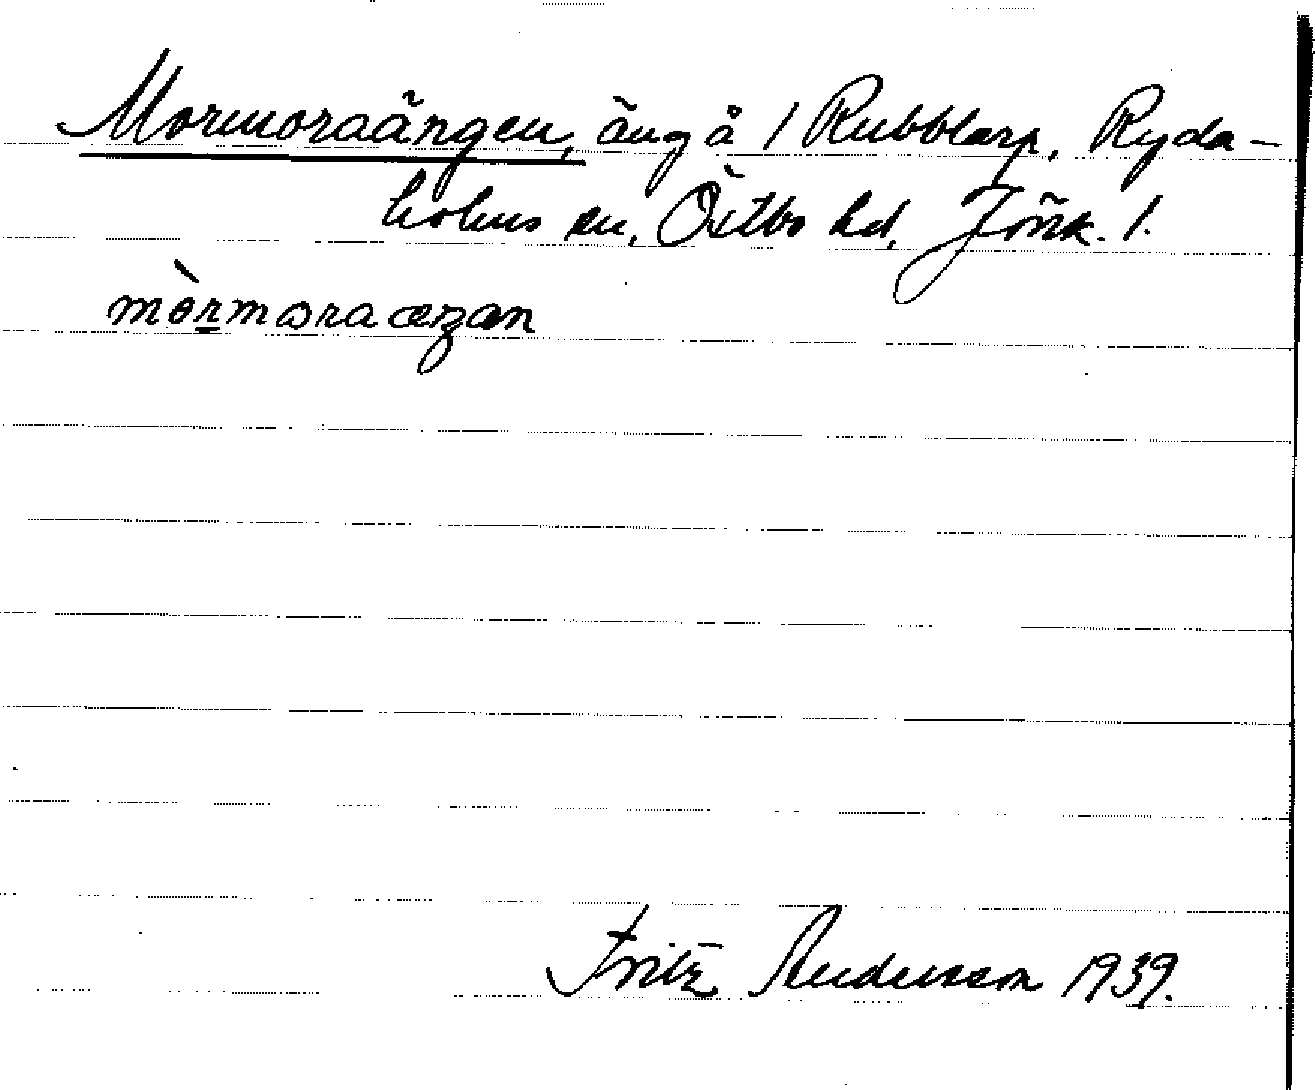 Mormoraängen, äng å 1 Rubblarp, Ryda-
holms sn, Östbo hd, Jönk. l.
mòrmoraæŋan
Fritz Andersson 1939.